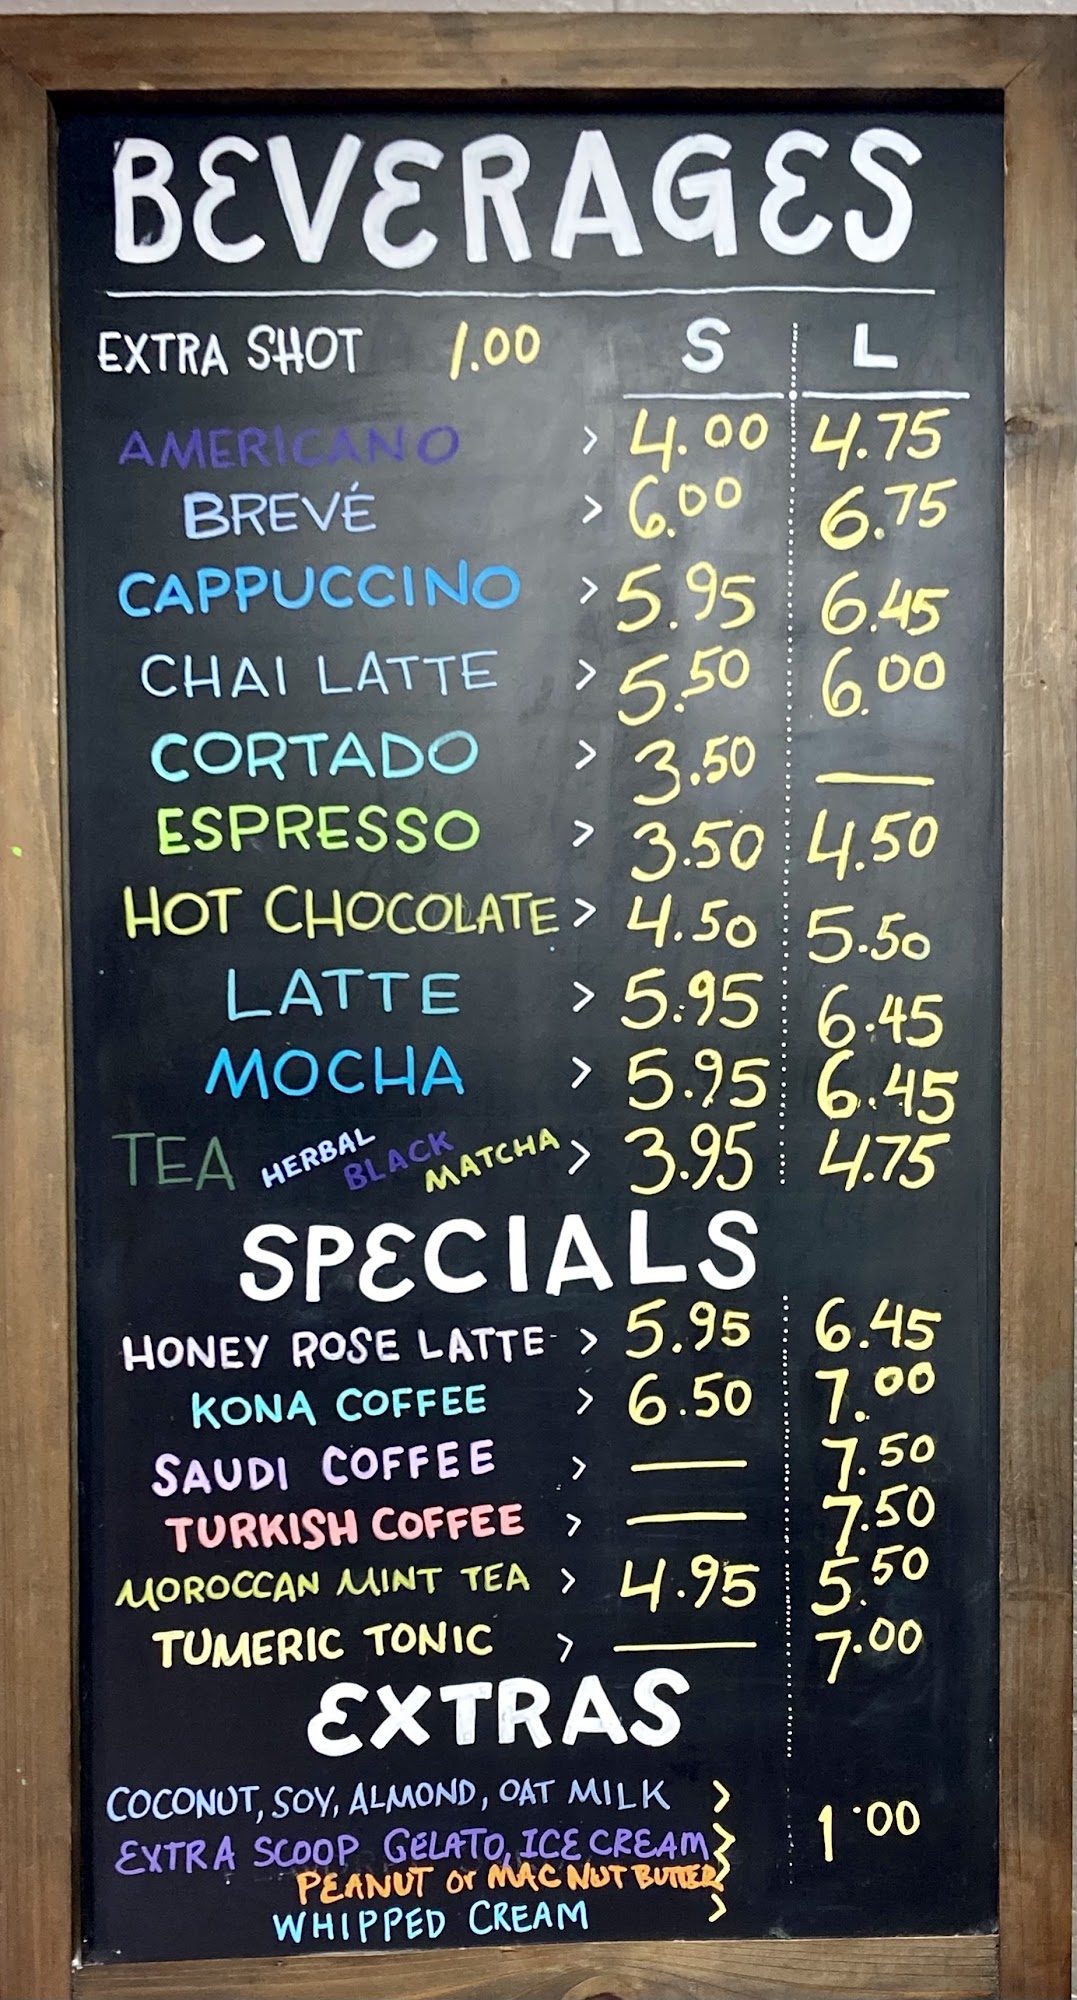 BEVERAGES
EXTRA SHOT 1.00 S L
AMERICANO > 4.00 4.75
BREVÉ > 6.00 6.75
CAPPUCCINO > 5.95 6.45
CHAI LATTE > 5.50 6.00
CORTADO > 3.50 —
ESPRESSO > 3.50 4.50
HOT CHOCOLATE > 4.50 5.50
LATTE > 5.95 6.45
MOCHA > 5.95 6.45
TEA HERBAL BLACK MATCHA > 3.95 4.75
SPECIALS
HONEY ROSE LATTE > 5.95 6.45
KONA COFFEE > 6.50 7.00
SAUDI COFFEE > — 7.50
TURKISH COFFEE > — 7.50
MOROCCAN MINT TEA > 4.95 5.50
TUMERIC TONIC > — 7.00
EXTRAS
COCONUT, SOY, ALMOND, OAT MILK > 1.00
EXTRA SCOOP GELATO, ICE CREAM >
PEANUT or MAC NUT BUTTER >
WHIPPED CREAM >